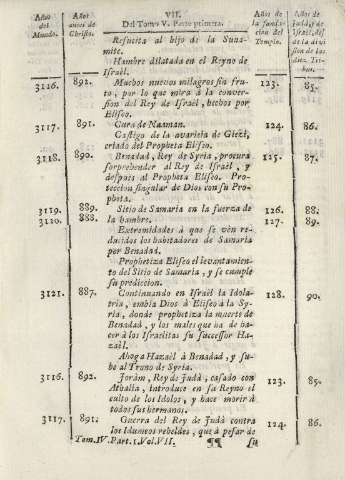 Años del Mundo.
Años antes de Christo.
VII.
Del Tomo V. Parte primera.
Años de la funda- cion del Templo.
Años de la de Israël, des de la divi sion de las diez Tri- bus.
Resucita al hijo de la Suna-
mite.
Hambre dilatada en el Reyno de
Israël.
3116. 892. Muchos nuevos milagros sin fru- 123. 85.
to, por lo que mira à la conver-
sion del Rey de Israël, hechos por
Eliseo.
3117. 891. Cura de Naaman. 124. 86.
Castigo de la avaricia de Giezi,
criado del Propheta Eliseo.
3118. 890. Benadad, Rey de Syria, procura 125. 87.
sorprehender al Rey de Israël, y
despues al Propheta Eliseo. Pro-
teccion singular de Dios con su Pro-
pheta.
3119. 889. Sitio de Samaria en la fuerza de 126. 88.
3120. 888. la hambre. 127. 89.
Extremidades à que se vèn re-
ducidos los habitadores de Samaria
por Benadad.
Prophetiza Eliseo el levantamien-
to del Sitio de Samaria, y se cumple
su prediccion.
3121. 887. Continuando en Israël la Idola- 128. 90.
tria, embia Dios à Eliseo à la Sy-
ria, donde prophetiza la muerte de
Benadad, y los males que ha de ha-
cer à los Israelitas su successor Ha-
zaël.
Ahoga Hazaël à Benadad, y su-
be al Trono de Syria.
3116. 892. Joràm, Rey de Judà, casado con 123. 85.
Athalia, introduce en su Reyno el
culto de los Idolos, y hace morir à
todos sus hermanos.
3117. 891. Guerra del Rey de Judà contra 124. 86.
los Idumeos rebeldes, que à pesar de
Tom. IV. Part. I. Vol. VII. ¶¶ su